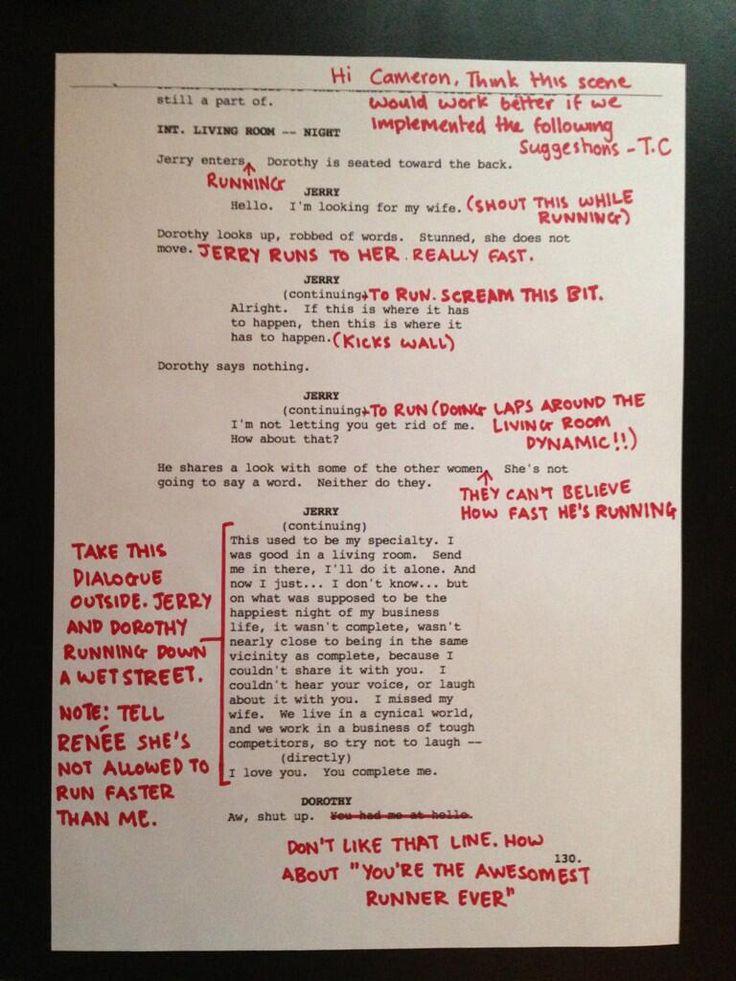 Hi Cameron, Think this scene
still a part of. would work better if we
implemented the following
INT. LIVING ROOM -- NIGHT
Suggestions - T.C
Jerry enters. Dorothy is seated toward the back.
RUNNING
JERRY
Hello. I'm looking for my wife. (SHOUT THIS WHILE
RUNNING)
Dorothy looks up, robbed of words. Stunned, she does not
move. JERRY RUNS TO HER. REALLY FAST.
JERRY
(continuing) TO RUN. SCREAM THIS BIT.
Alright. If this is where it has
to happen, then this is where it
has to happen. (KICKS WALL)
Dorothy says nothing.
JERRY
(continuing) TO RUN (DOING LAPS AROUND THE
I'm not letting you get rid of me. LIVING ROOM
How about that? DYNAMIC!!)
He shares a look with some of the other women. She's not
going to say a word. Neither do they.
THEY CAN'T BELIEVE
HOW FAST HE'S RUNNING
JERRY
(continuing)
This used to be my specialty. I
was good in a living room. Send
me in there, I'll do it alone. And
now I just... I don't know... but
on what was supposed to be the
happiest night of my business
life, it wasn't complete, wasn't
nearly close to being in the same
vicinity as complete, because I
couldn't share it with you. I
couldn't hear your voice, or laugh
about it with you. I missed my
wife. We live in a cynical world,
and we work in a business of tough
competitors, so try not to laugh --
(directly)
I love you. You complete me.
TAKE THIS
DIALOGUE
OUTSIDE. JERRY
AND DOROTHY
RUNNING DOWN
A WET STREET.
NOTE: TELL
RENÉE SHE'S
NOT ALLOWED TO
RUN FASTER
THAN ME.
DOROTHY
Aw, shut up. You had me at hello.
DON'T LIKE THAT LINE. HOW
ABOUT "YOU'RE THE AWESOMEST
RUNNER EVER"
130.